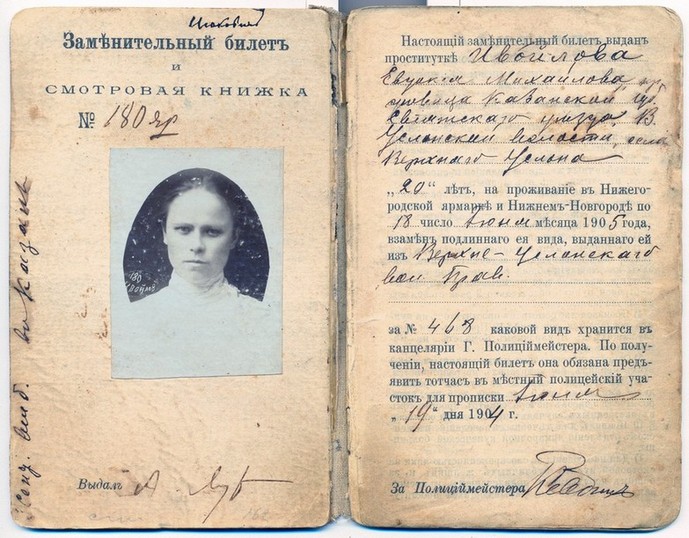 Замѣнительный билетъ
и
СМОТРОВАЯ КНИЖКА
№ 180 яр
180
Выдалъ А.
Настоящій замѣнительный билетъ выданъ
проституткѣ Ивойлова
Евдокія Михайлова
Казанской губ.
Свіяжскаго уѣзда, В.
Услонской волости, села
Верхняго Услона
„20“ лѣтъ, на проживаніе въ Нижего-
родской ярмаркѣ и Нижнемъ-Новгородѣ по
18 число іюня мѣсяца 1905 года,
взамѣнъ подлиннаго ея вида, выданнаго ей
изъ Верхне-Услонскаго
вол. Прав.
за № 468 каковой видъ хранится въ
канцеляріи Г. Полиціймейстера. По полу-
ченіи, настоящій билетъ она обязана предъ-
явить тотчасъ въ мѣстный полицейскій уча-
стокъ для прописки іюня
„19“ дня 1904 г.
За Полиціймейстера